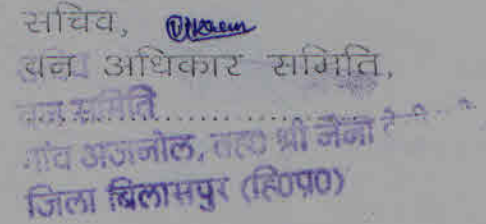 सचिव,
वन अधिकार समिति,
वन समिति..................
गांव अजनोल, तह0 श्री नैना
जिला बिलासपुर (हि0प्र0)